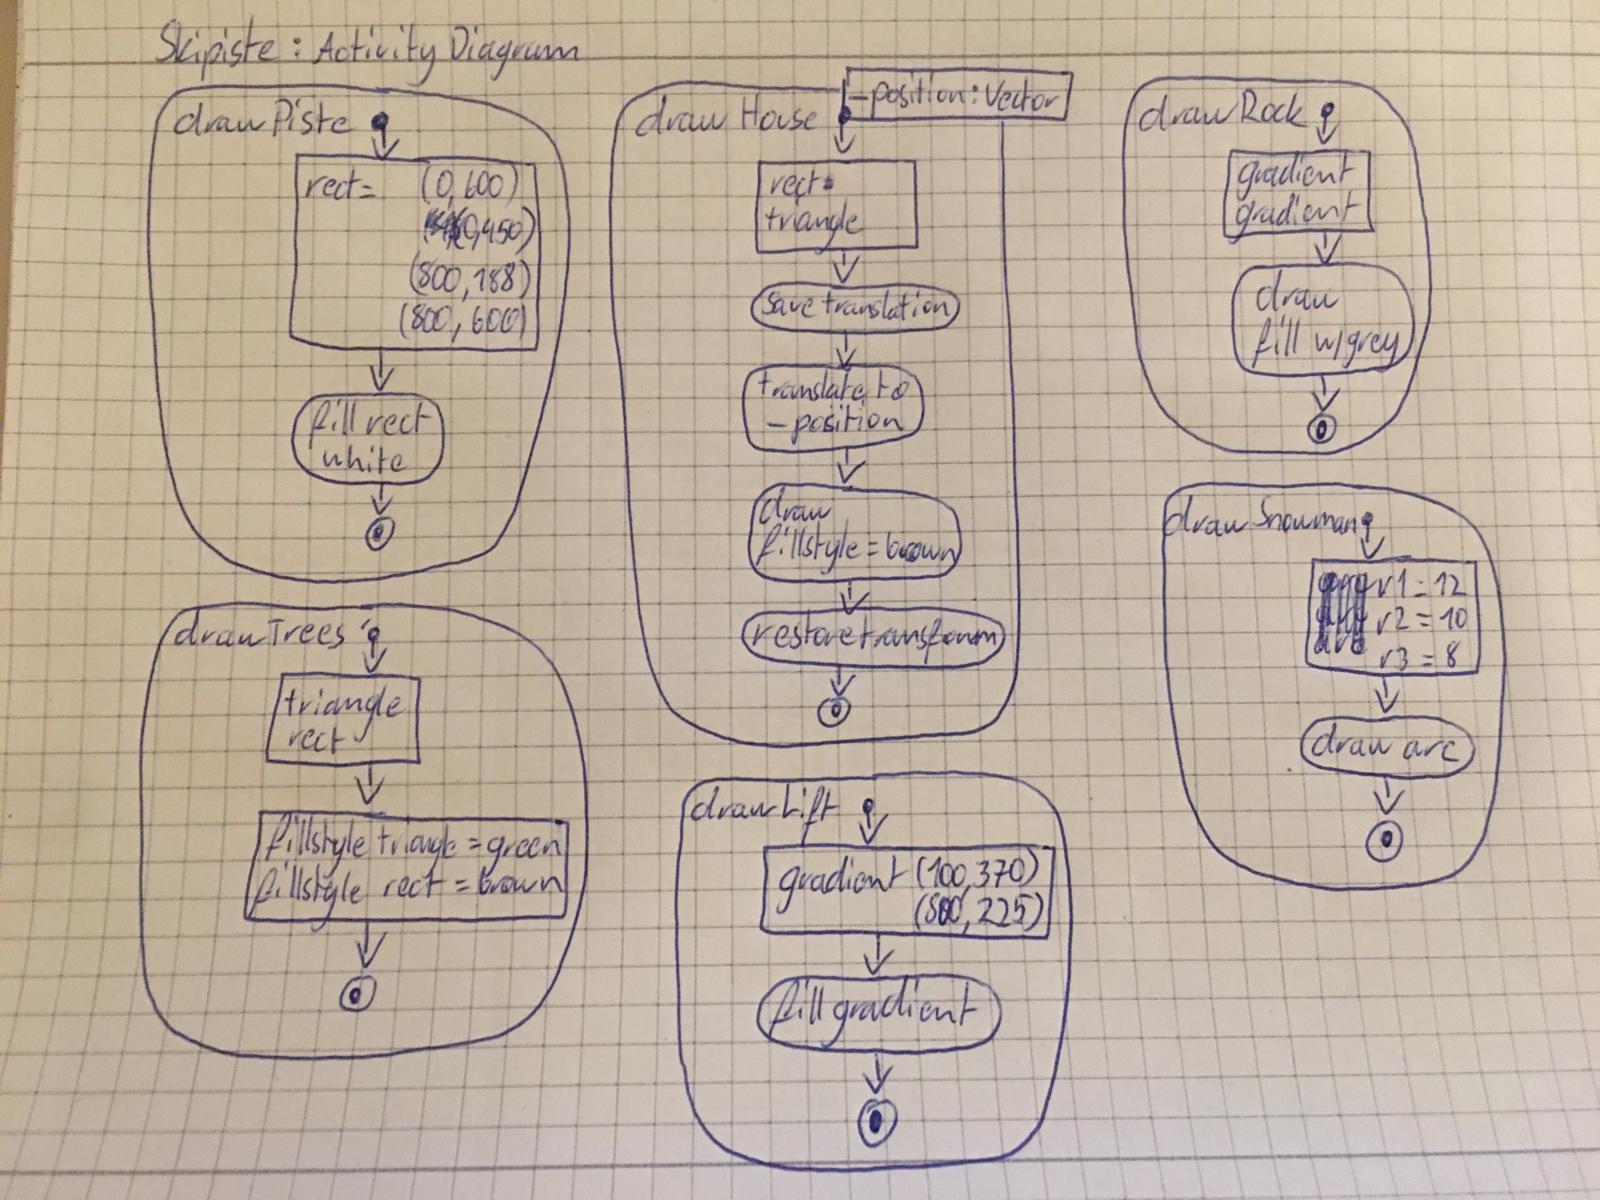 Skipiste: Activity Diagram
drawPiste
rect= (0,600)
(0,450)
(800,188)
(800,600)
fill rect
white
drawTrees
triangle
rect
fillstyle triangle = green
fillstyle rect = brown
drawHouse
-position: Vector
rect
triangle
save translation
translate to
-position
draw
fillstyle = brown
restore transform
drawLift
gradient (100,370)
(800,225)
fill gradient
drawRock
gradient
gradient
draw
fill w/grey
drawSnowman
r1 = 12
r2 = 10
r3 = 8
draw arc